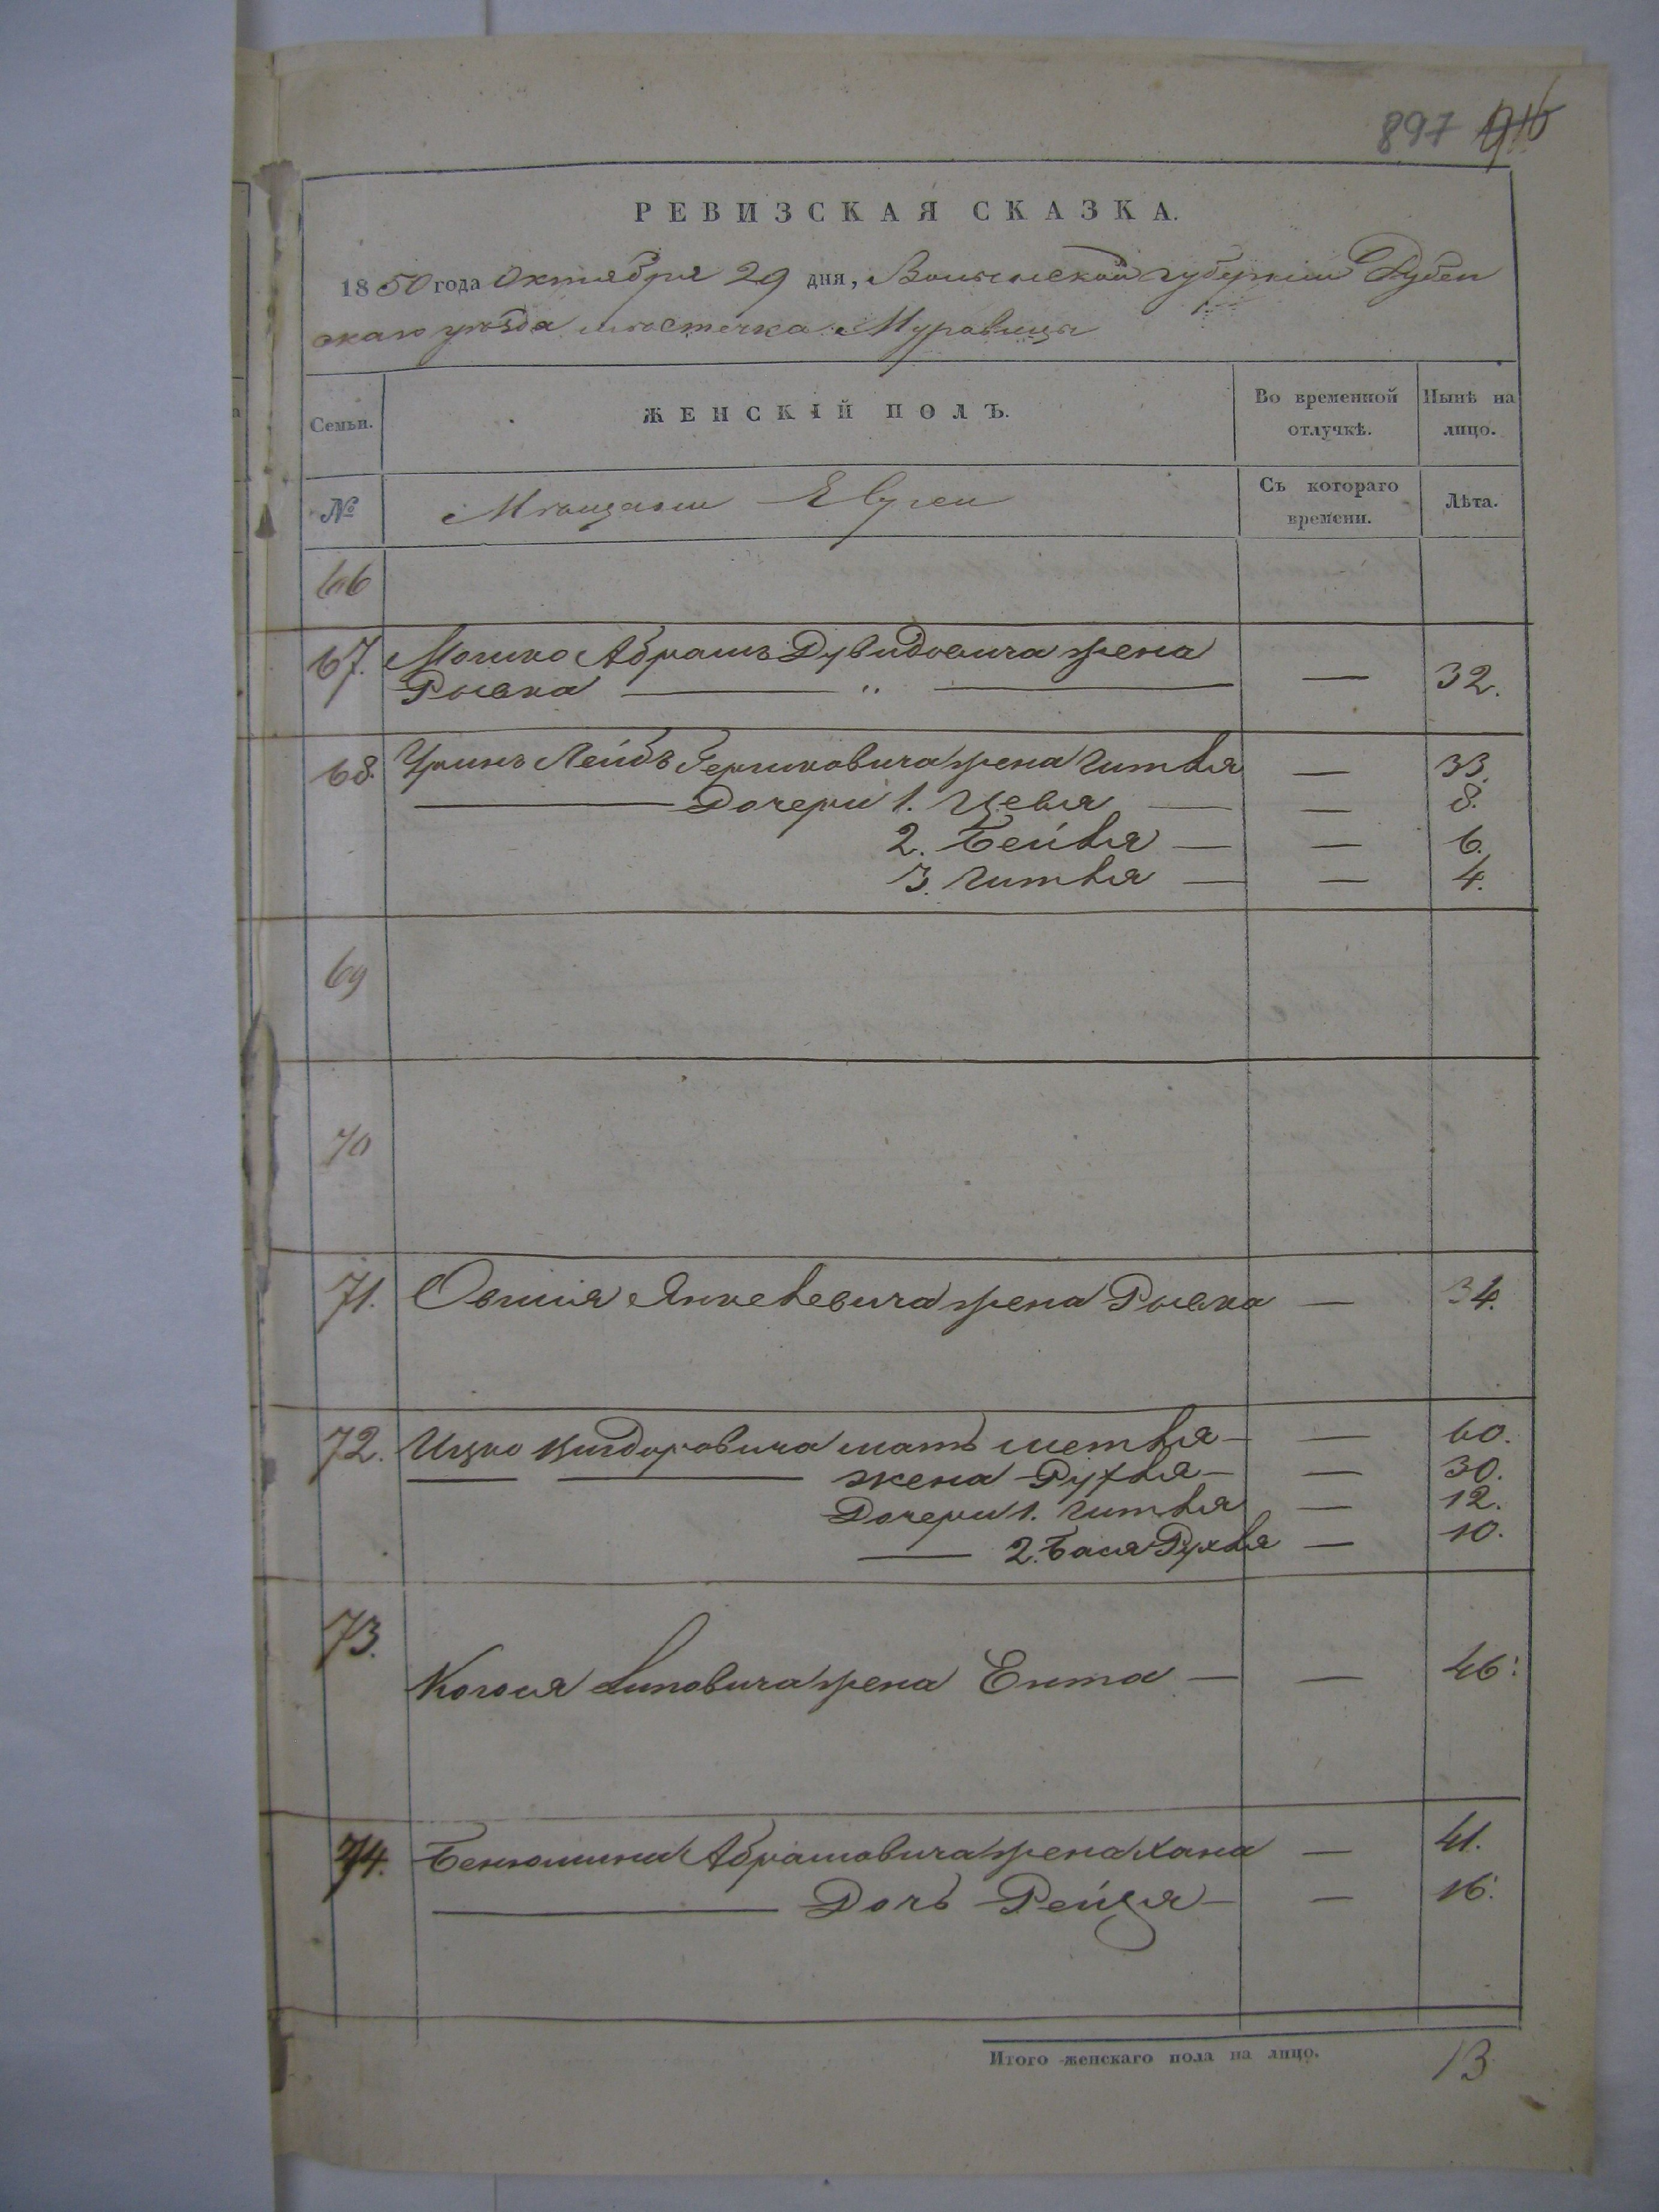 897
РЕВИЗСКАЯ СКАЗКА.
1850 года Октября 29 дня, Волынской губернiи Дубен
скаго уѣзда мѣстечка Муравицы
Семьи.
ЖЕНСКІЙ ПОЛЪ.
Во временной отлучкѣ.
Нынѣ на лицо.
№
Мѣщане Евреи
Съ котораго времени.
Лѣта.
66
67. Мошко Абрамъ Дувидовича жена
Рывка — " — — 32.
68. Лейбъ Гершковича жена Гитля — 33.
Дочери 1. Цевя — — 8.
2. Бейля — — 6.
3. Гитля — — 4.
69
70
71. Овшія Янкелевича жена Рывка — 34.
72. Ицко мать шетля — — 60.
жена Рухля — — 30.
Дочери 1. Гитля — 12.
2. Бася Рухля — 10.
73. Липовича жена Ента — — 46.
74. Бенюмина Абрамовича жена хана — 41.
Дочь Рейзя — — 16.
Итого женскаго пола на лицо. 13